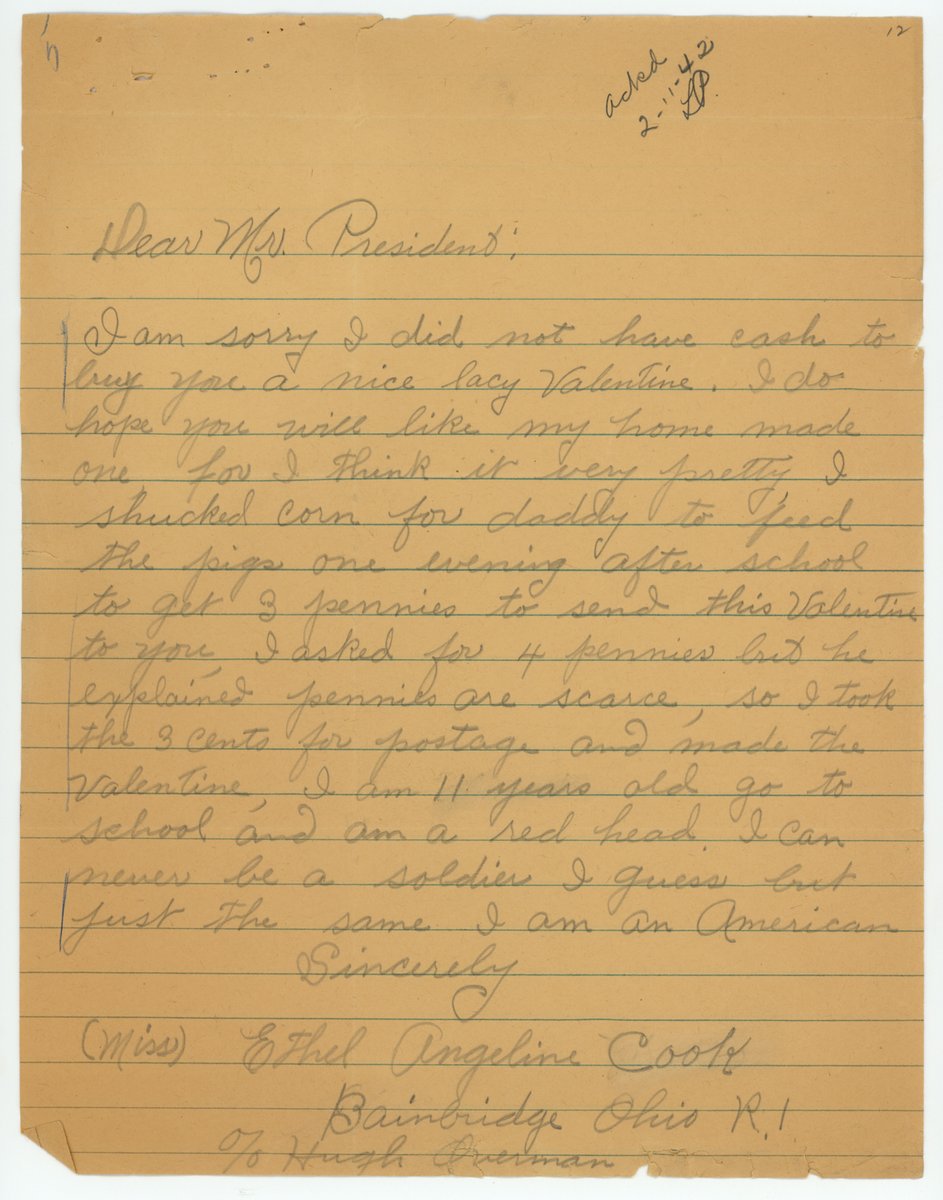 12
ackd
2-11-42
Dear Mr. President:
I am sorry I did not have cash to
buy you a nice lacy Valentine. I do
hope you will like my home made
one, for I think it very pretty, I
shucked corn for daddy to feed
the pigs one evening after school
to get 3 pennies to send this Valentine
to you, I asked for 4 pennies but he
explained pennies are scarce, so I took
the 3 cents for postage and made the
Valentine, I am 11 years old go to
school and am a red head. I can
never be a soldier I guess but
just the same I am an American
Sincerely
(Miss) Ethel Angeline Cook
Bainbridge Ohio R.1
c/o Hugh Overman